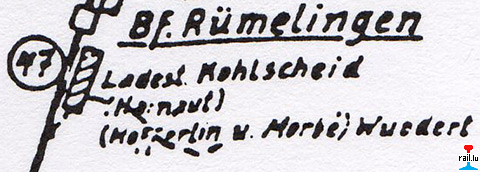 Bf. Rümelingen
47
Ladest. Kohlscheid
u. Morbé, Wuedert
rail.lu